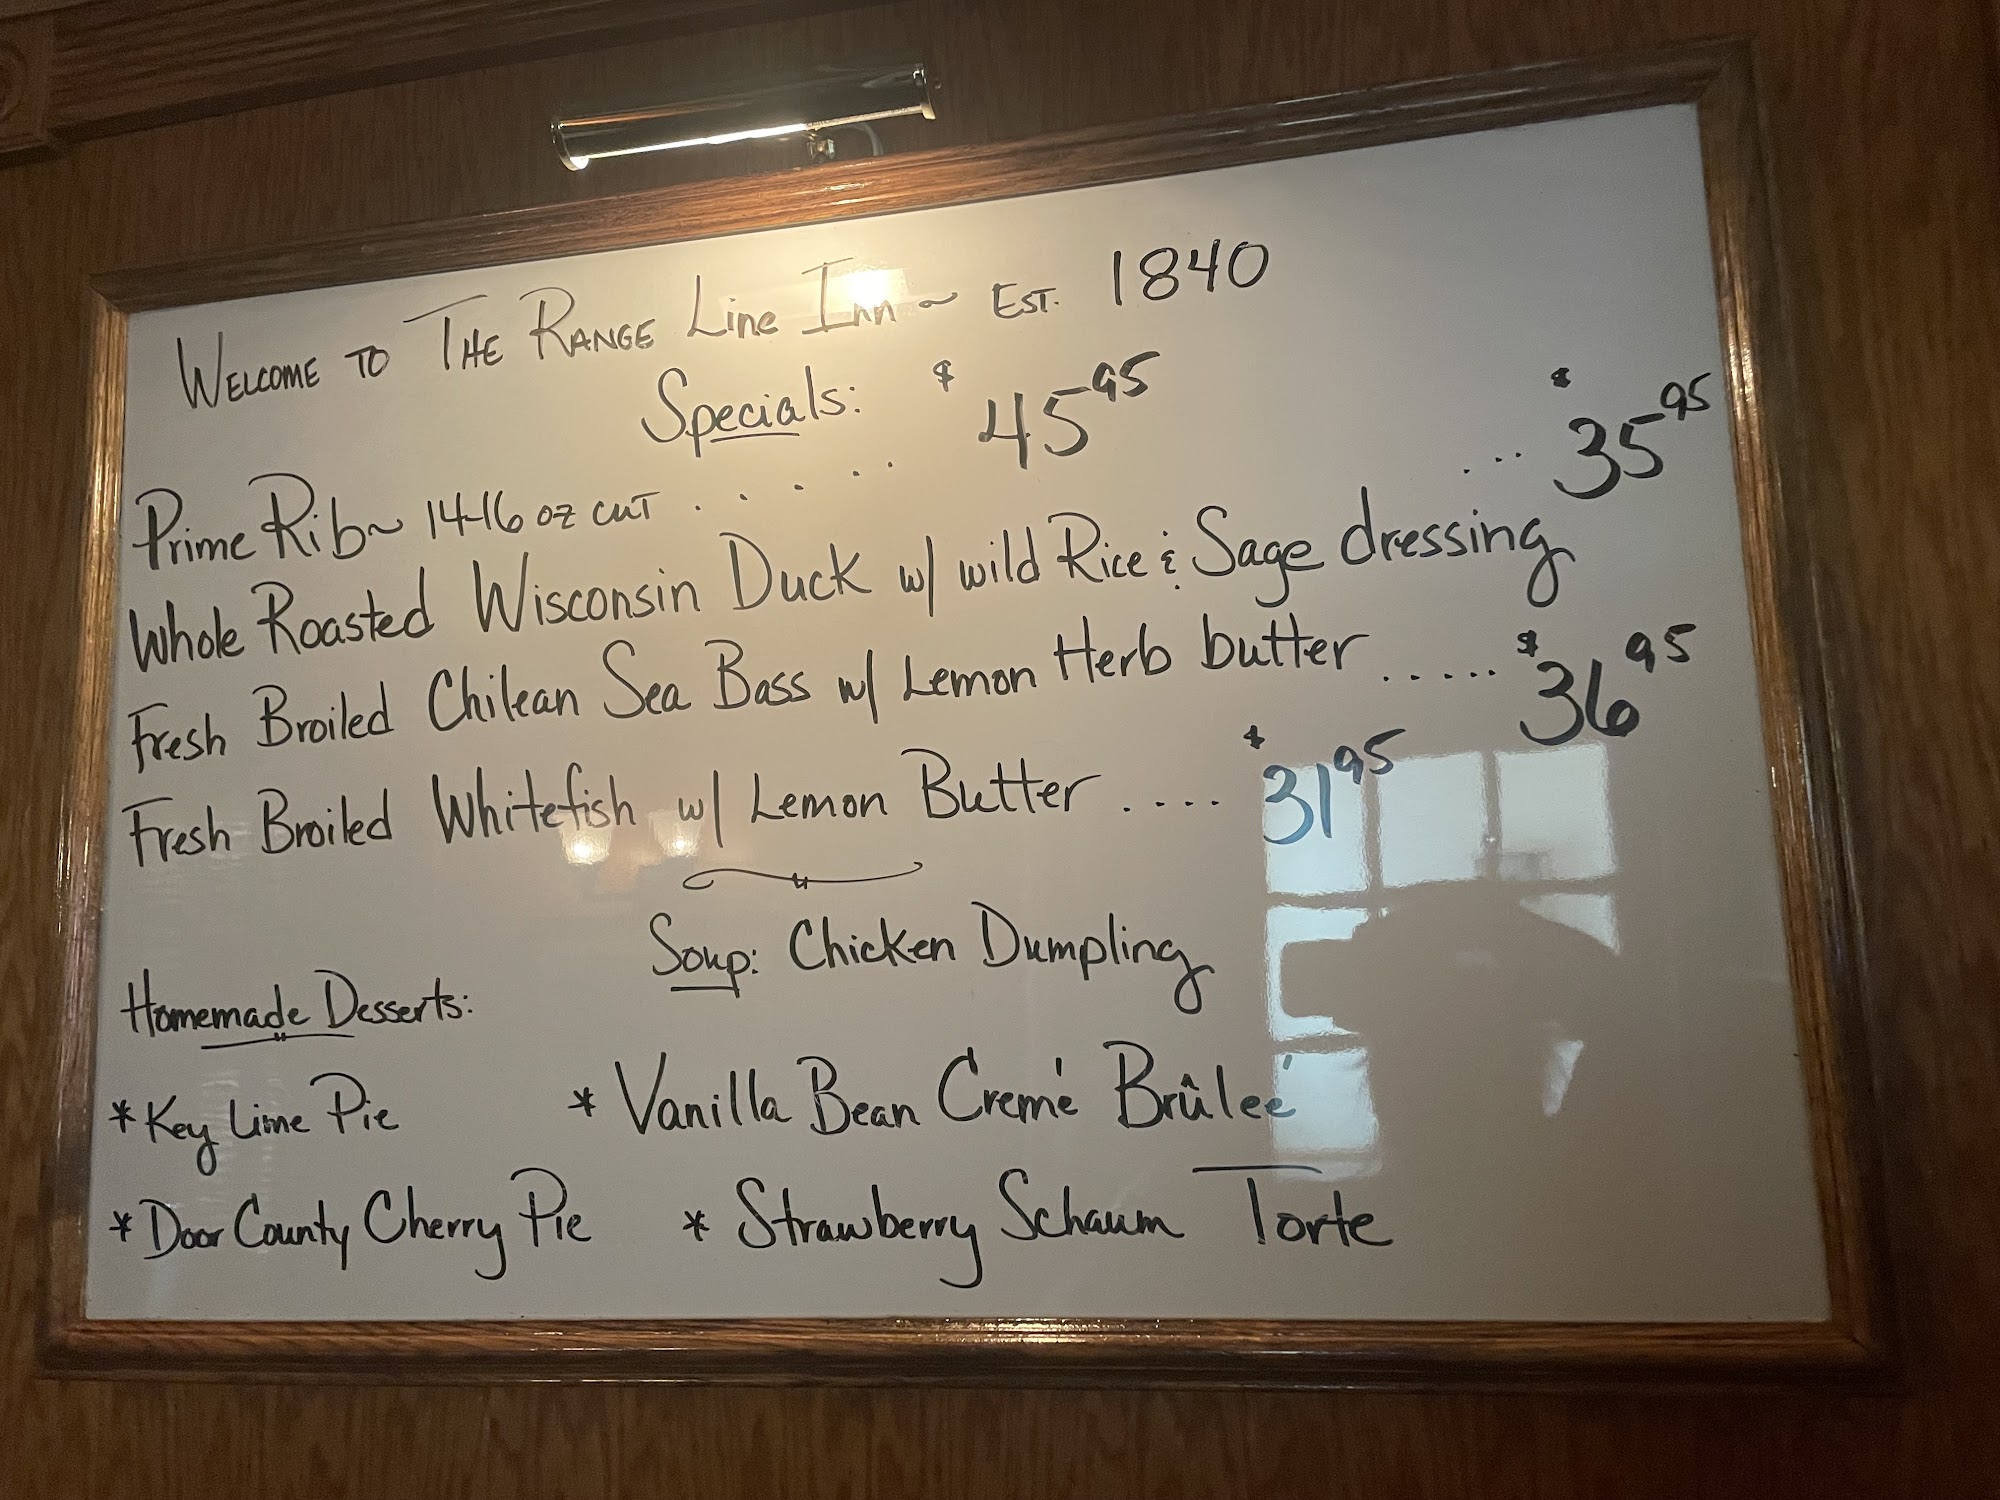 WELCOME TO THE RANGE Line Inn ~ EST. 1840
Specials:
Prime Rib ~ 14-16 oz cut . . . . . $45.95
Whole Roasted Wisconsin Duck w/ wild Rice & Sage dressing ... $35.95
Fresh Broiled Chilean Sea Bass w/ Lemon Herb butter ..... $36.95
Fresh Broiled Whitefish w/ Lemon Butter .... $31.95
Soup: Chicken Dumpling
Homemade Desserts:
* Key Lime Pie * Vanilla Bean Cremé Brûleé
* Door County Cherry Pie * Strawberry Schaum Torte